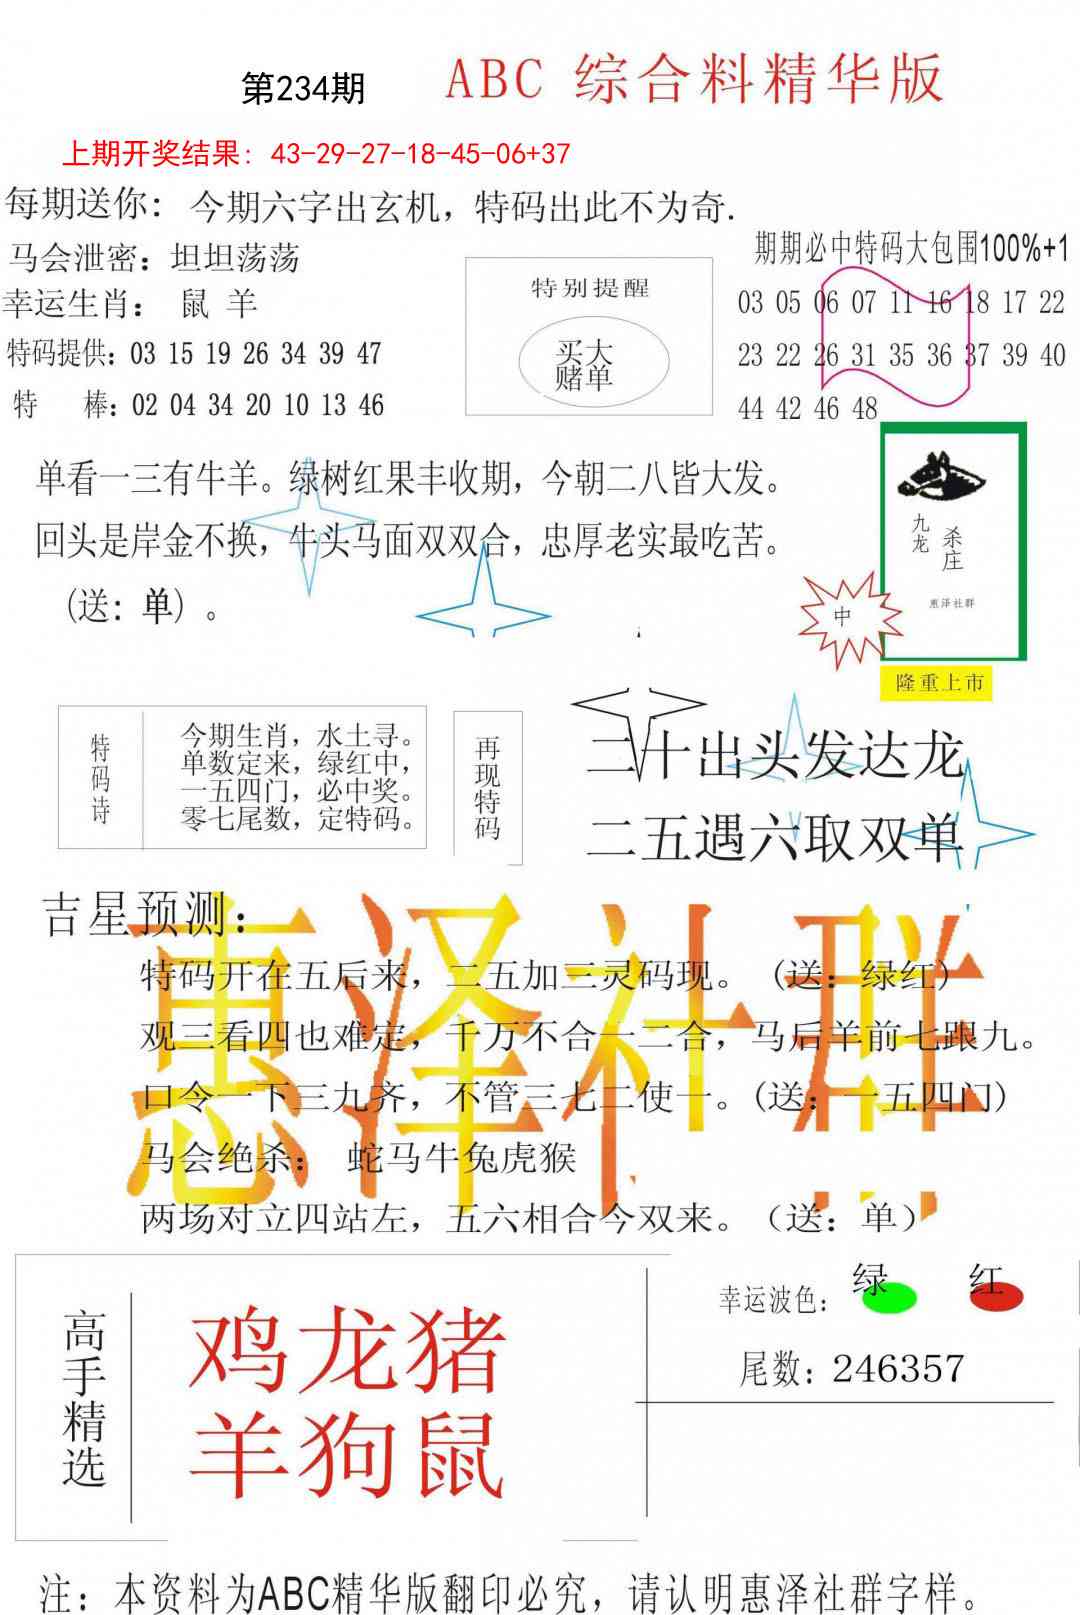 第234期
ABC 综合料精华版
上期开奖结果：43-29-27-18-45-06+37
每期送你：今期六字出玄机，特码出此不为奇.
马会泄密：坦坦荡荡
幸运生肖： 鼠 羊
特码提供：03 15 19 26 34 39 47
特 棒：02 04 34 20 10 13 46
特别提醒
买大
赌单
期期必中特码大包围100%+1
03 05 06 07 11 16 18 17 22
23 22 26 31 35 36 37 39 40
44 42 46 48
单看一三有牛羊。绿树红果丰收期，今朝二八皆大发。
回头是岸金不换，牛头马面双双合，忠厚老实最吃苦。
(送：单) 。
九龙
杀庄
惠泽社群
中
隆重上市
特码诗
今期生肖，水土寻。
单数定来，绿红中，
一五四门，必中奖。
零七尾数，定特码。
再现特码
二十出头发达龙
二五遇六取双单
吉星预测：
惠泽社群
特码开在五后来，二五加三灵码现。 (送：绿红)
观三看四也难定，千万不合一二合，马后羊前七跟九。
口令一下三九齐，不管三七二使一。(送：一五四门)
马会绝杀： 蛇马牛兔虎猴
两场对立四站左，五六相合今双来。（送：单）
高手精选
鸡龙猪
羊狗鼠
幸运波色： 绿 红
尾数：246357
注：本资料为ABC精华版翻印必究，请认明惠泽社群字样。